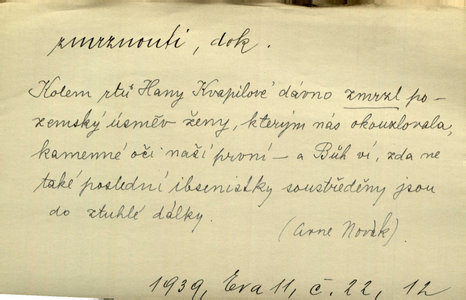 zmrznouti, dok.
Kolem rtů Hany Kvapilové dávno zmrzl po-
zemský úsměv ženy, kterým nás okouzlovala,
kamenné oči naší první – a Bůh ví, zda ne
také poslední ibsenistky soustředěny jsou
do ztuhlé dálky.
(Arne Novák)
1939, Eva 11, č. 22, 12